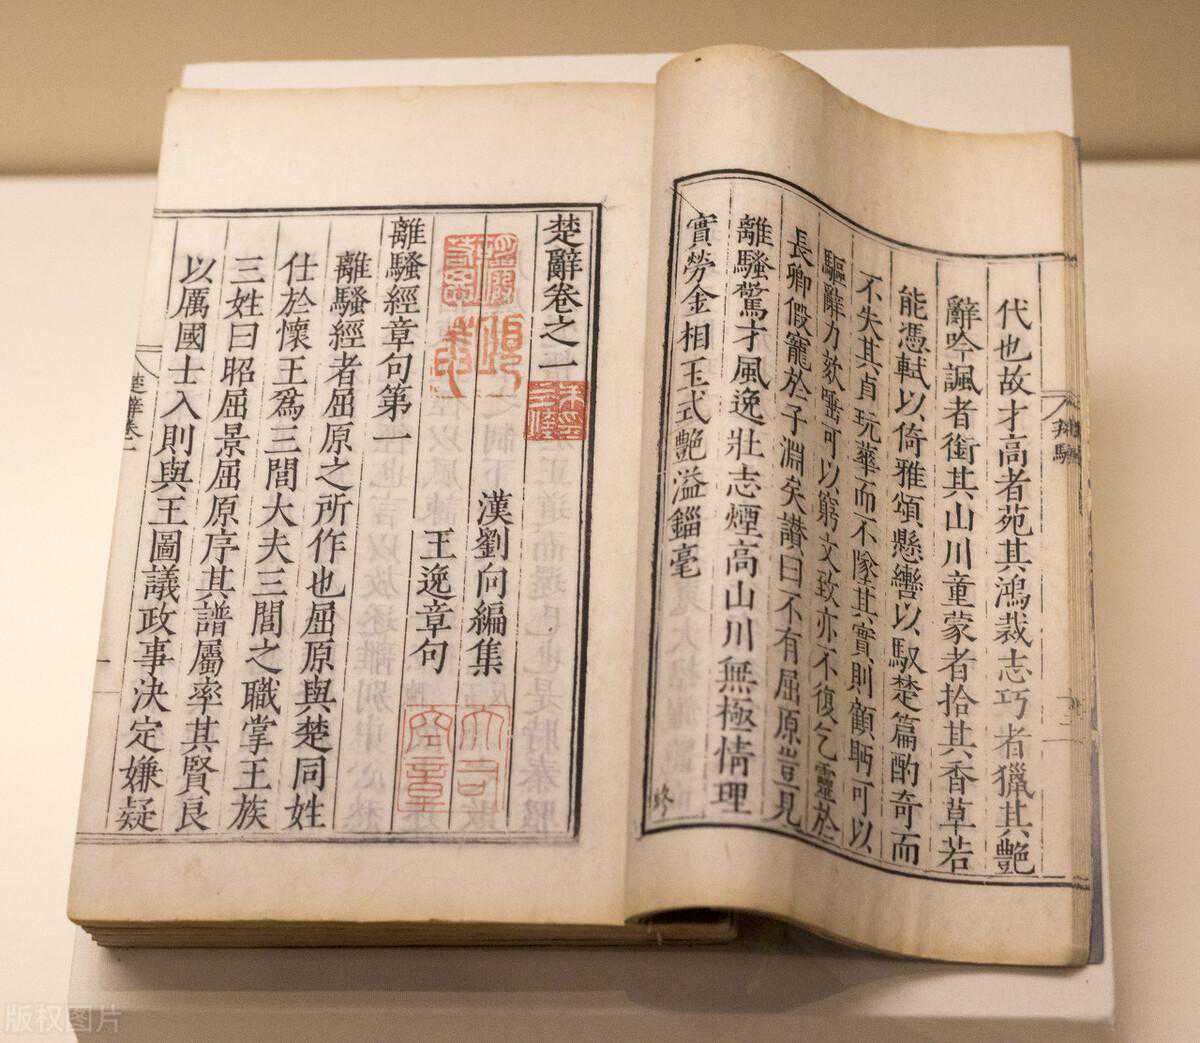 辨騷
代也故才高者苑其鴻裁志巧者獵其艷
辭吟諷者銜其山川童蒙者拾其香草若
能憑軾以倚雅頌懸轡以馭楚篇酌奇而
不失其貞玩華而不墜其實則顧眄可以
驅辭力欬唾可以窮文致亦不復乞靈於
長卿假寵於子淵矣讚曰不有屈原豈見
離騷驚才風逸壯志煙高山川無極情理
實勞金相玉式艷溢錙毫
楚辭卷之一
漢劉向編集
王逸章句
離騷經章句第一
離騷經者屈原之所作也屈原與楚同姓
仕於懷王爲三閭大夫三閭之職掌王族
三姓曰昭屈景屈原序其譜屬率其賢良
以厲國士入則與王圖議政事決定嫌疑
楚辭卷一
一
版权图片